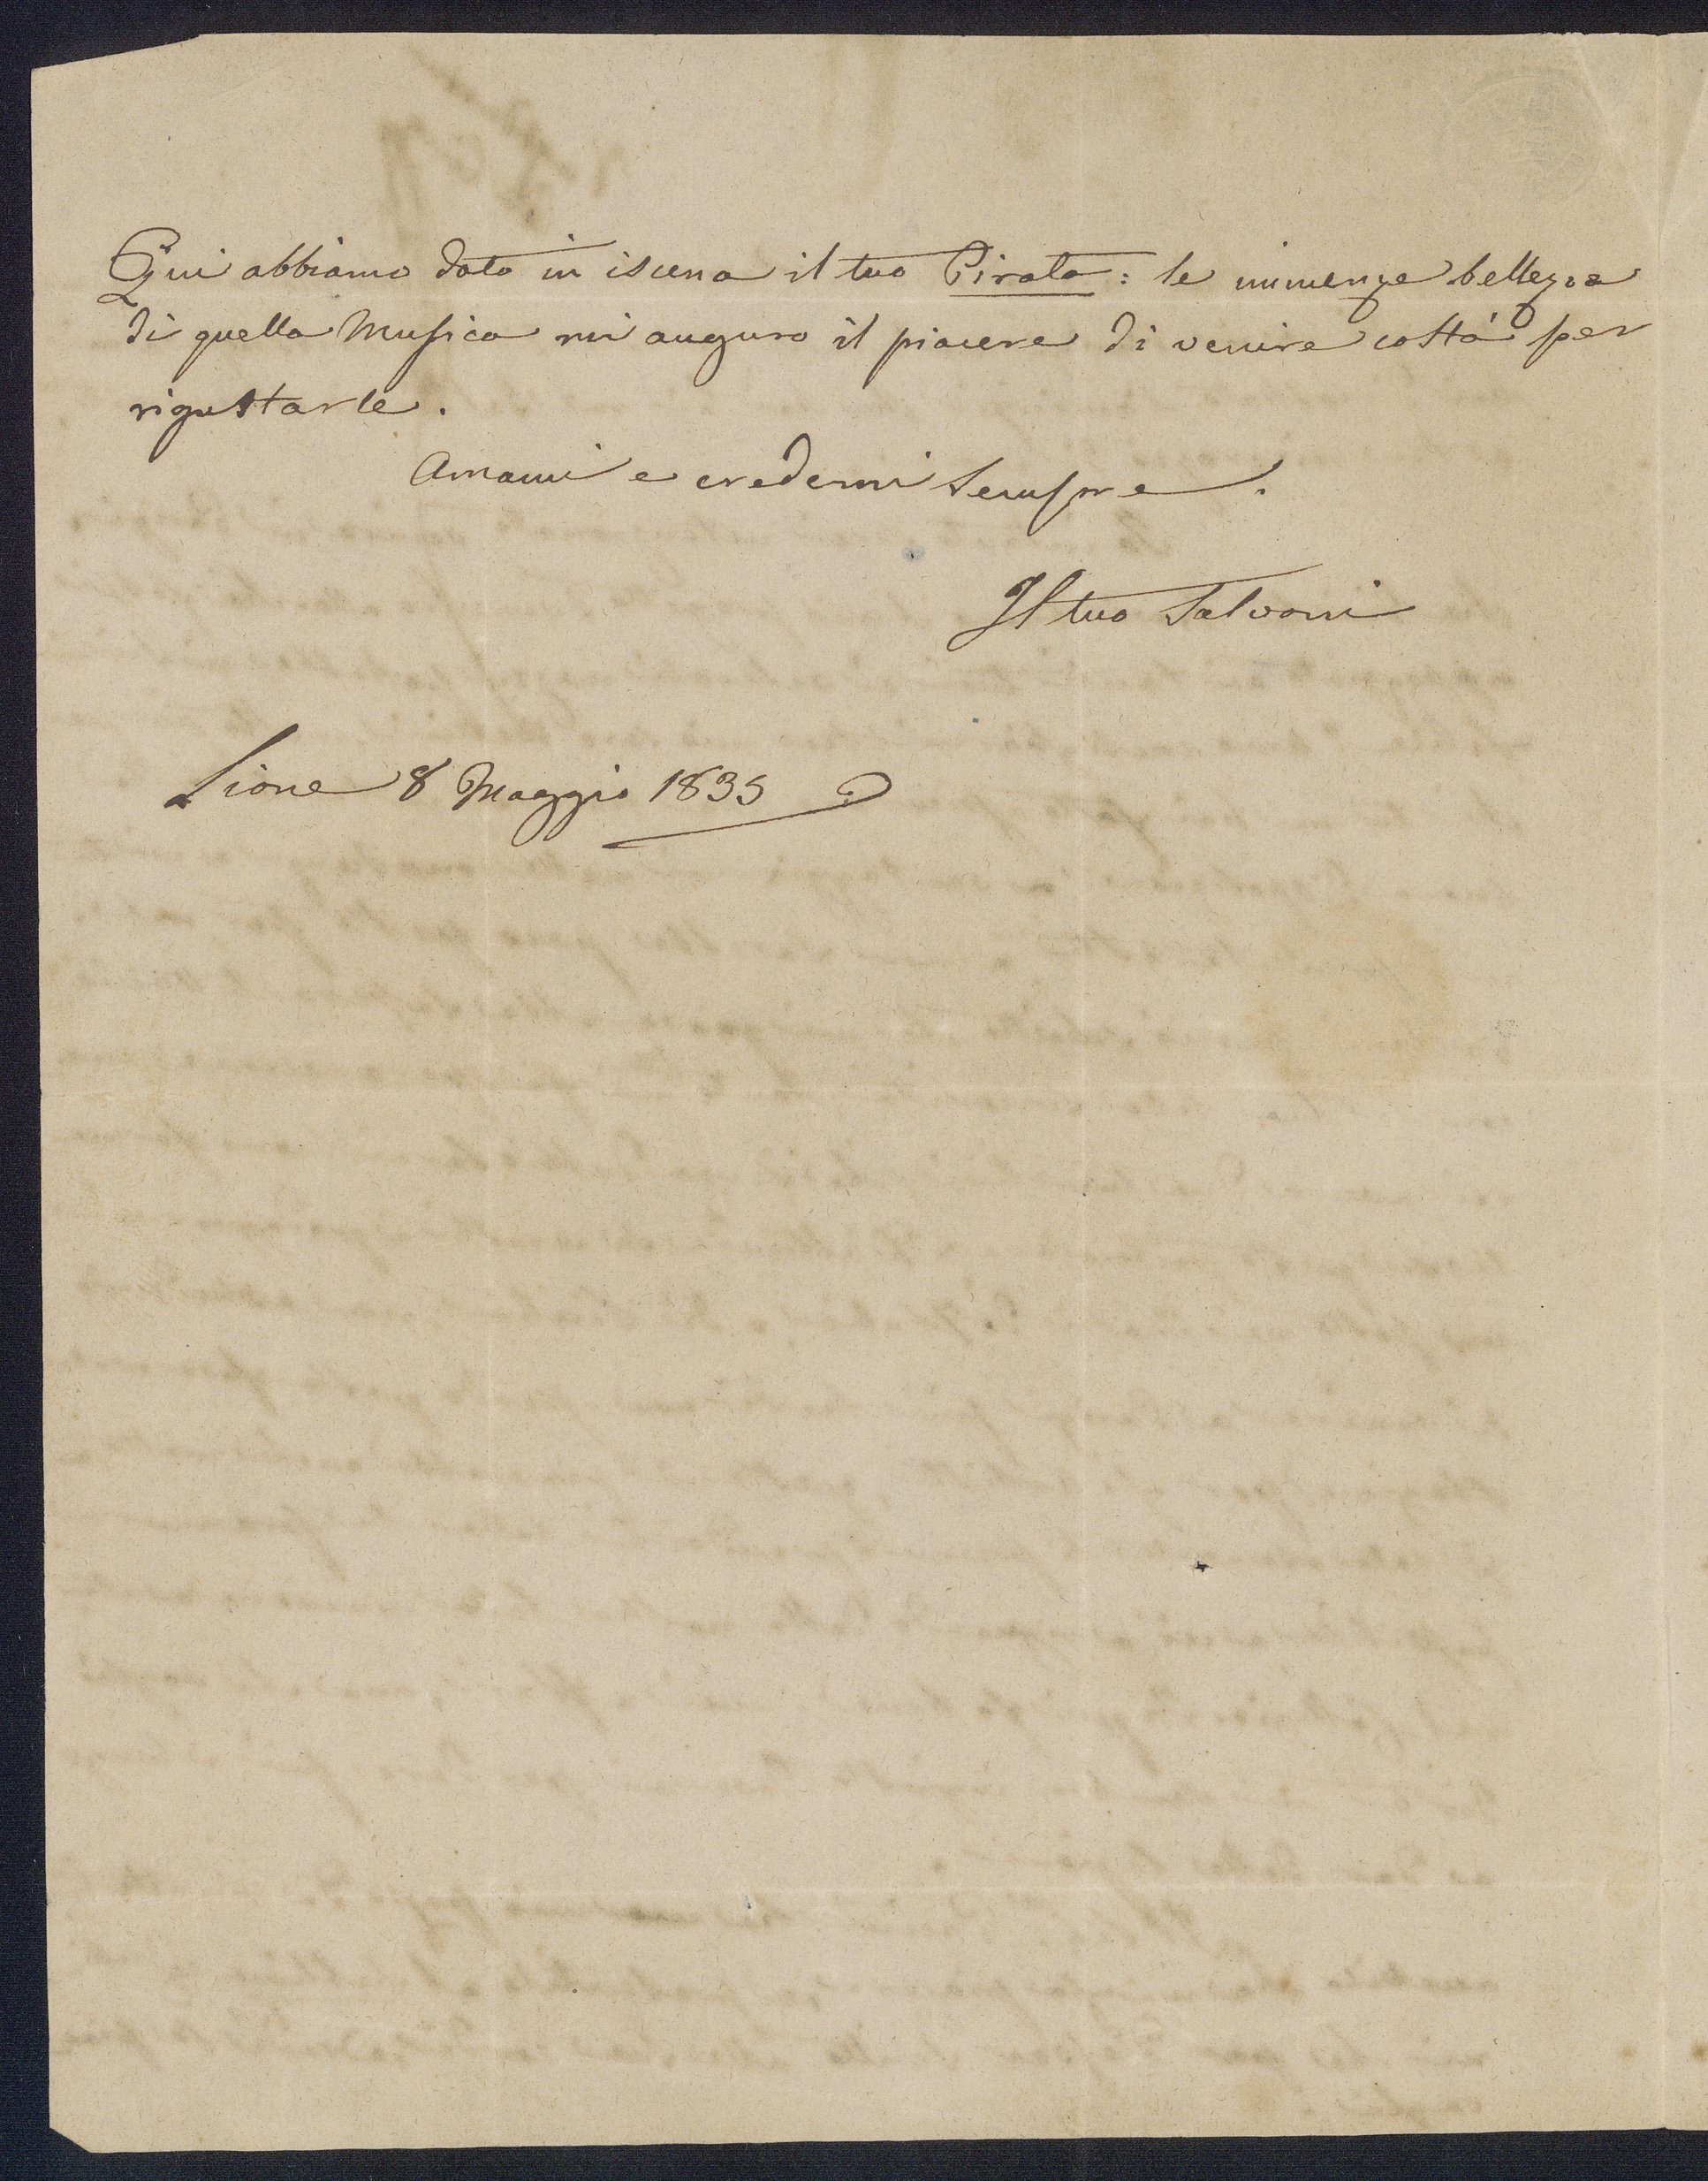 Qui abbiamo dato in iscena il tuo Pirata: le immenze bellezze
di quella Musica mi auguro il piacere di venire costà per
rigustarle.
Amami e credemi sempre.
Il tuo Salvoni
Lione 8 Maggio 1835